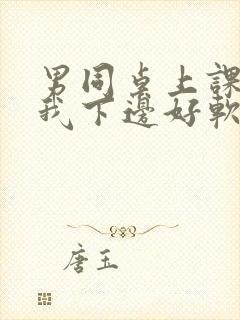 男同桌上課
我下邊好軟
唐玉